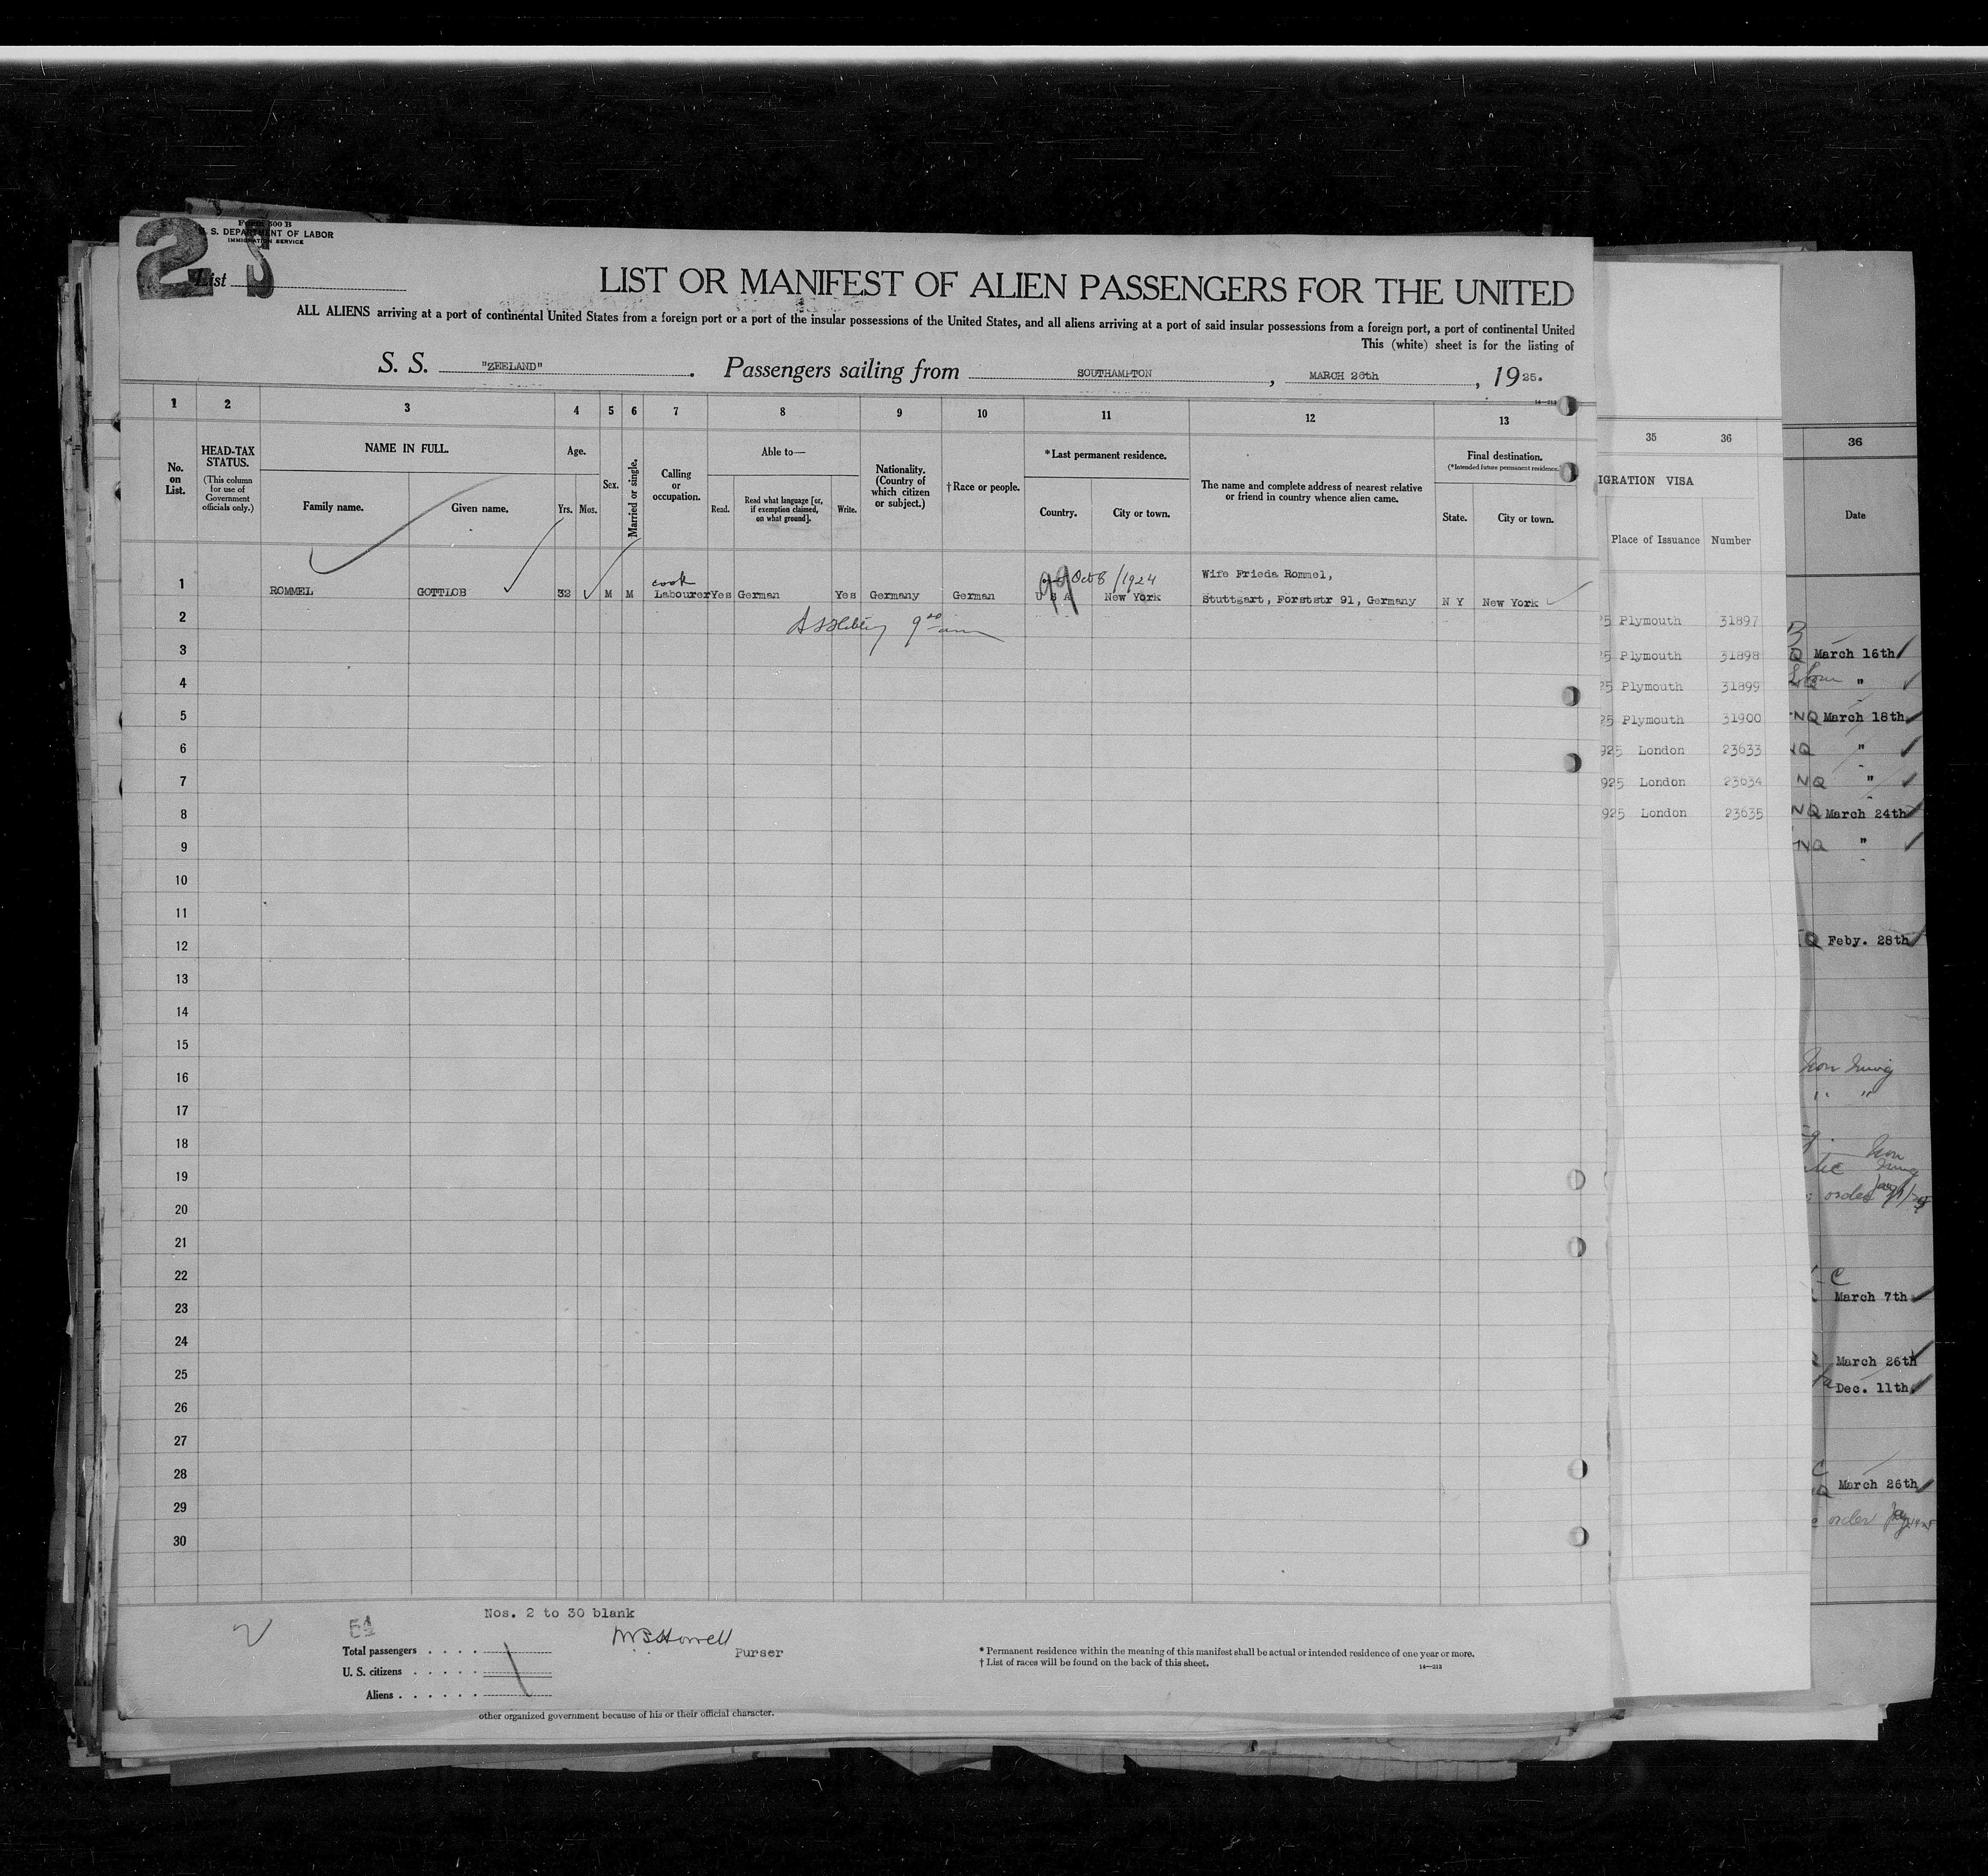 2 S
Form 500 B
U. S. DEPARTMENT OF LABOR
IMMIGRATION SERVICE
List
LIST OR MANIFEST OF ALIEN PASSENGERS FOR THE UNITED
ALL ALIENS arriving at a port of continental United States from a foreign port or a port of the insular possessions of the United States, and all aliens arriving at a port of said insular possessions from a foreign port, a port of continental United
This (white) sheet is for the listing of
S. S. "ZEELAND". Passengers sailing from SOUTHAMPTON, MARCH 26th, 1925.
14—213
1 2 3 4 5 6 7 8 9 10 11 12 13
No. on List.
HEAD-TAX STATUS.
(This column for use of Government officials only.)
NAME IN FULL.
Family name. Given name.
Age.
Yrs. Mos.
Sex.
Married or single.
Calling or occupation.
Able to—
Read. Read what language [or, if exemption claimed, on what ground]. Write.
Nationality. (Country of which citizen or subject.)
†Race or people.
*Last permanent residence.
Country. City or town.
The name and complete address of nearest relative or friend in country whence alien came.
Final destination.
(*Intended future permanent residence.)
State. City or town.
cook 99 Oct 8/1924 Wife Frieda Rommel,
1 ROMMEL GOTTLOB 32 M M Labourer Yes German Yes Germany German U S A New York Stuttgart, Forststr 91, Germany N Y New York
2
3
4
5
6
7
8
9
10
11
12
13
14
15
16
17
18
19
20
21
22
23
24
25
26
27
28
29
30
Nos. 2 to 30 blank
Total passengers
U. S. citizens
Aliens
Purser
* Permanent residence within the meaning of this manifest shall be actual or intended residence of one year or more.
† List of races will be found on the back of this sheet.
14—213
other organized government because of his or their official character.
35 36
IGRATION VISA
Place of Issuance Number
25 Plymouth 31897
25 Plymouth 31898
25 Plymouth 31899
25 Plymouth 31900
925 London 23633
925 London 23634
925 London 23635
36
Date
Q March 16th
"
NQ March 18th
NQ "
NQ "
NQ March 24th
NQ "
Q Feby. 28th
" "
order
C
March 7th
March 26th
Dec. 11th
C
Q March 26th
order